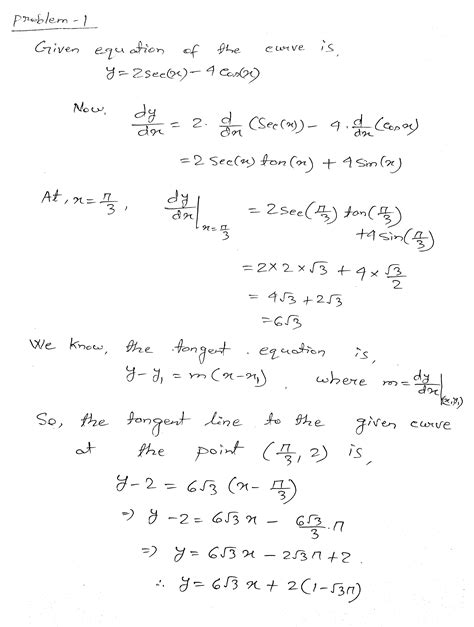 Problem-1
Given equation of the curve is,
y = 2sec(x) - 4cos(x)
Now, dy/dx = 2. d/dx (Sec(x)) - 4. d/dx (cosx)
= 2 sec(x) tan(x) + 4 sin(x)
At, x = π/3, dy/dx |x=π/3 = 2sec(π/3) tan(π/3)
+4 sin(π/3)
= 2×2×√3 + 4× √3/2
= 4√3 + 2√3
= 6√3
We know, the tangent equation is,
y-y₁ = m(x-x₁), where m = dy/dx |(x₁,y₁)
So, the tangent line to the given curve
at the point (π/3, 2) is,
y-2 = 6√3 (x- π/3)
⇒ y-2 = 6√3 x - 6√3/3 . π
⇒ y = 6√3 x - 2√3 π + 2
∴ y = 6√3 x + 2(1-√3π)